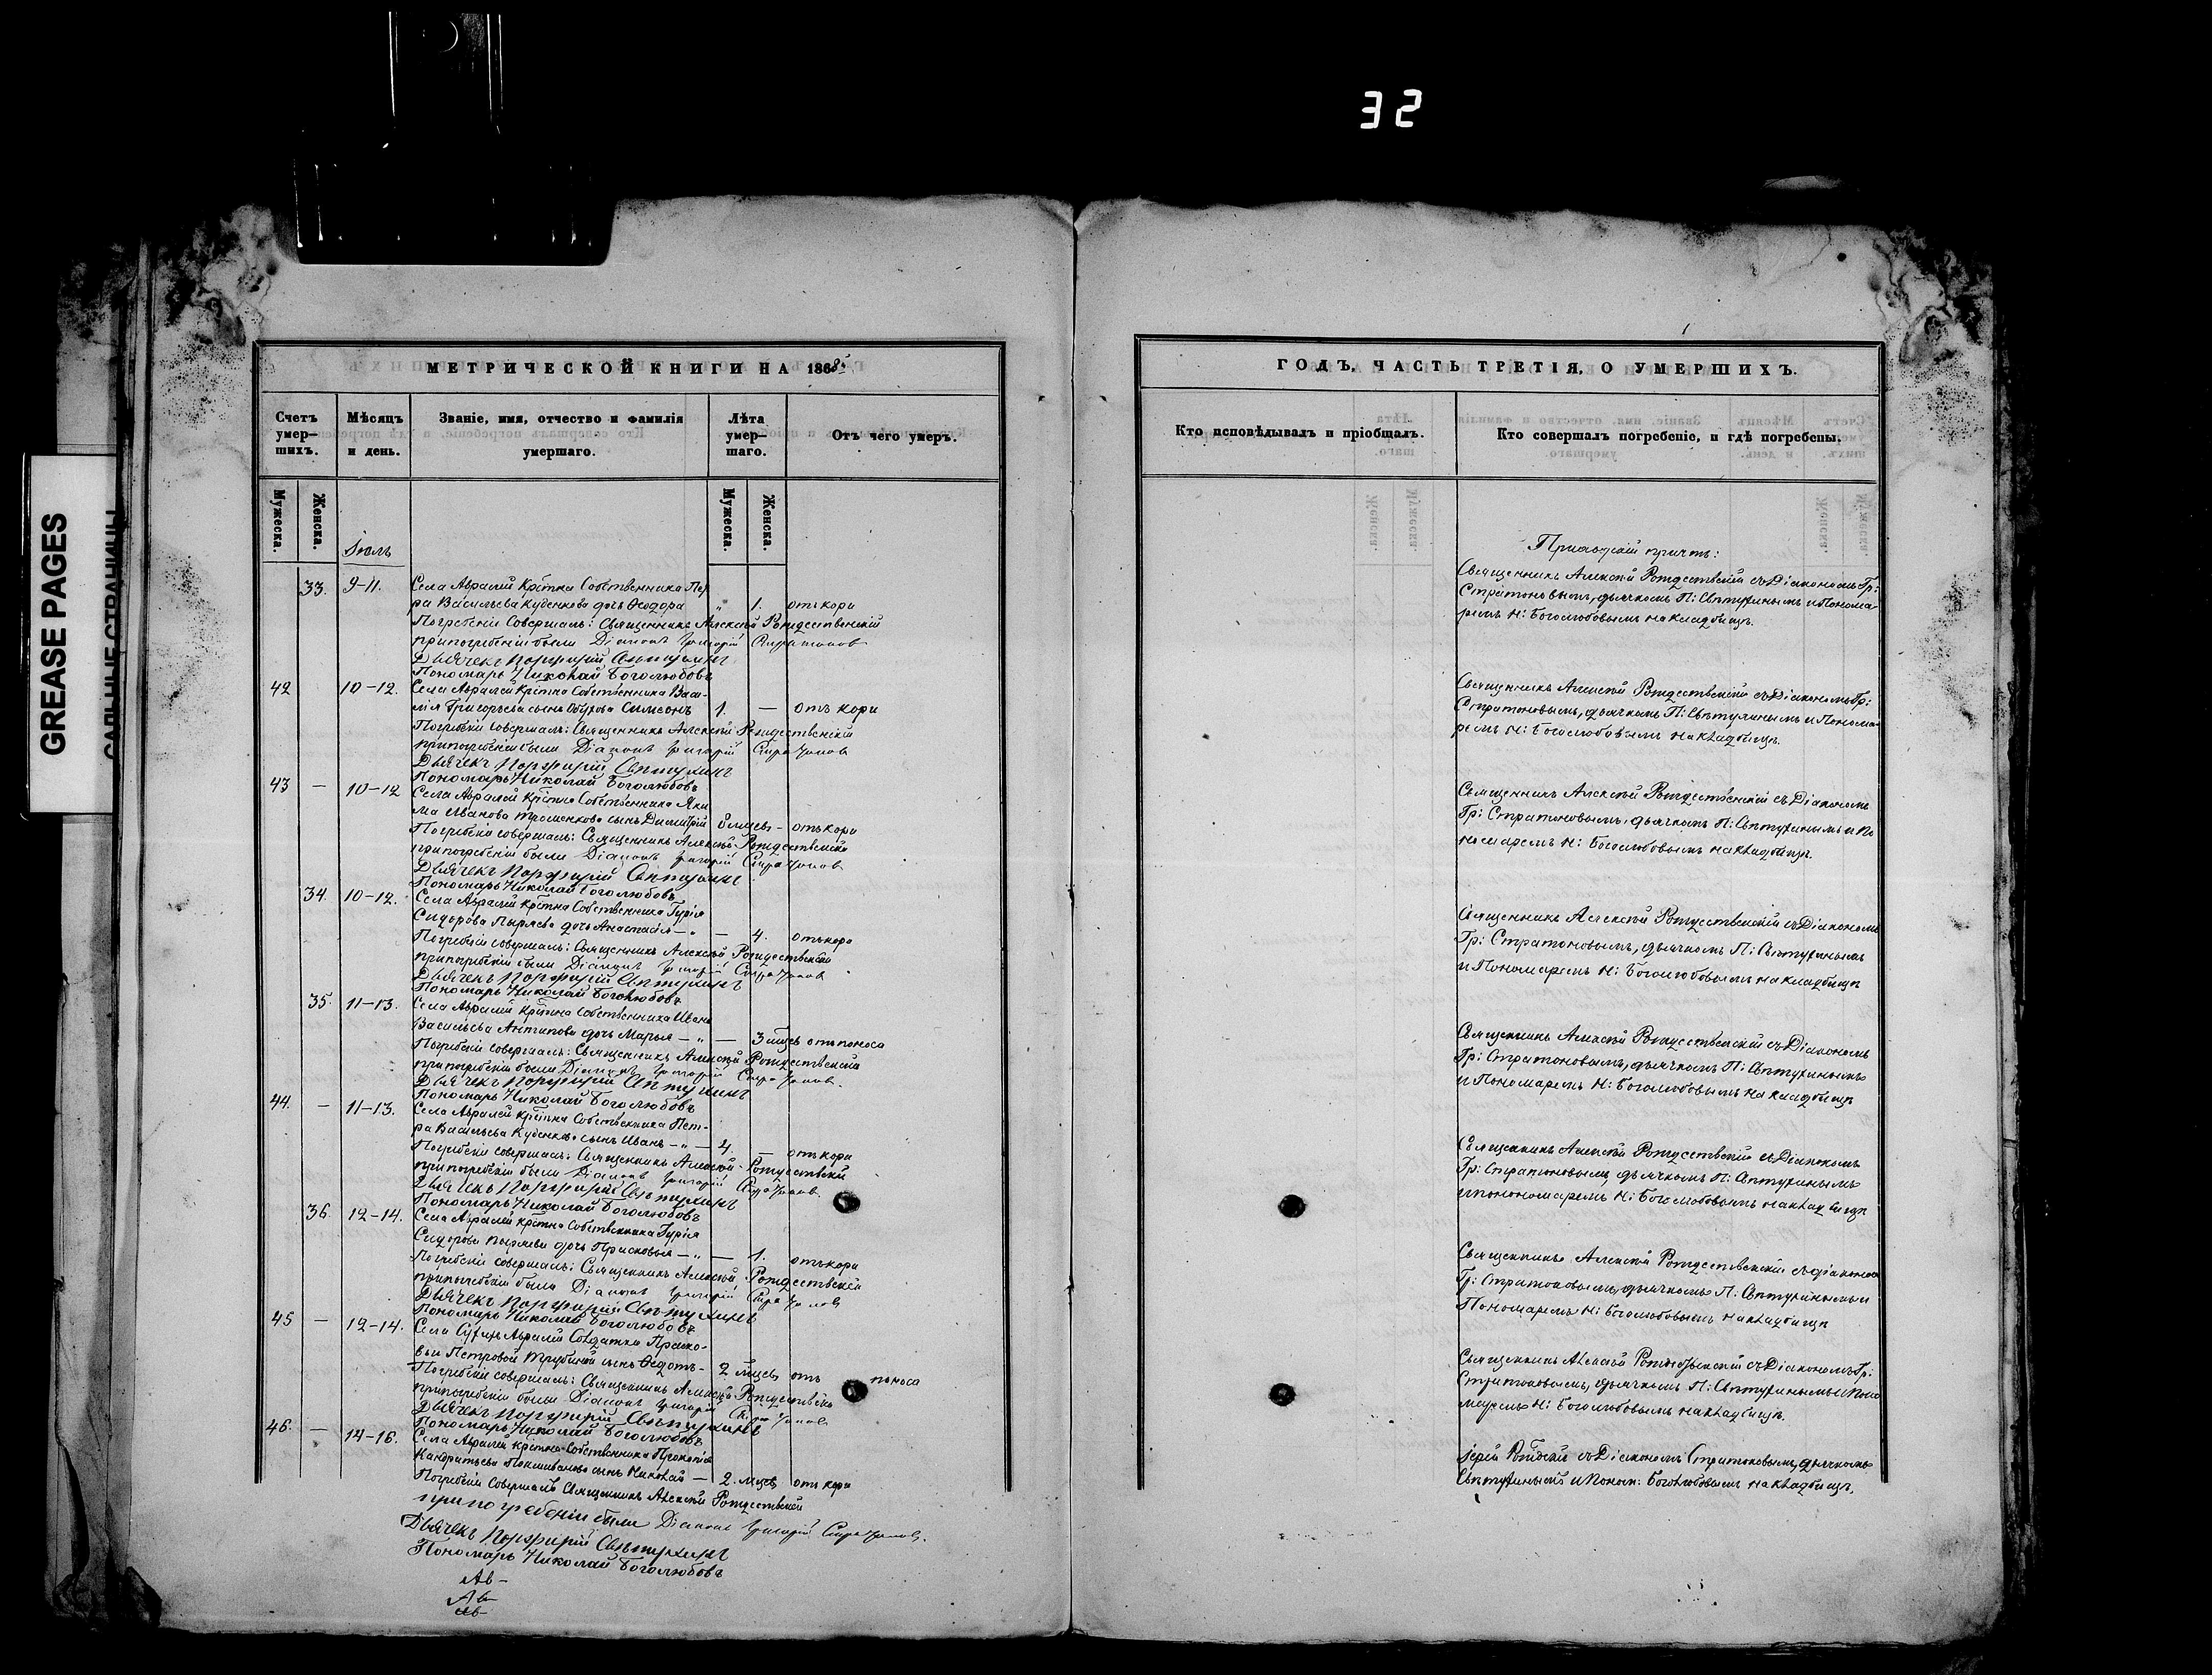 32
GREASE PAGES
МЕТРИЧЕСКОЙ КНИГИ НА 1868
Счетъ умер-шихъ.
Мѣсяцъ и день.
Званіе, имя, отчество и фамилія умершаго.
Лѣта умер-шаго.
Отъ чего умеръ.
Мужеска.
Женска.
Мужеска.
Женска.
Іюль
33. 9-11. Села Авралей Крестна Собственника Пет
ра Васильева Куденкова дочь Ѳеодора " 1. отъ кори
Погребеніе Совершалъ: Священникъ Алексѣй Рождественскій
при погребеніи были Діаконъ Григорій Стратоновъ
Дьячекъ Порфирій
Пономарь Николай Боголюбовъ
42 10-12. Села Авралей Крестна Собственника Васи-
лія Григорьева сынъ Симеонъ 1. — отъ кори
Погребеніе совершалъ: Священникъ Алексѣй Рождественскій
при погребеніи были Діаконъ Григорій Стратоновъ
Дьячекъ Порфирій
Пономарь Николай Боголюбовъ
43 — 10-12 Села Авралей Крестна Собственника Яки
ма Иванова сынъ Димитрій 8 мцевъ - отъ кори
Погребеніе совершалъ: Священникъ Алексѣй Рождественскій
при погребеніи были Діаконъ Григорій Стратоновъ
Дьячекъ Порфирій
Пономарь Николай Боголюбовъ
34. 10-12. Села Авралей Крестна Собственника Гурія
Сидорова Пыряева дочь Анастасія — " — 4. отъ кори
Погребеніе совершалъ: Священникъ Алексѣй Рождественскій
при погребеніи были Діаконъ Григорій Стратоновъ
Дьячекъ Порфирій
Пономарь Николай Боголюбовъ
35. 11-13. Села Авралей Крестна Собственника Ивана
Васильева Антипова дочь Марья — " — 3 мцевъ отъ поноса
Погребеніе совершалъ: Священникъ Алексѣй Рождественскій
при погребеніи были Діаконъ Григорій Стратоновъ
Дьячекъ Порфирій
Пономарь Николай Боголюбовъ
44. — 11-13. Села Авралей Крестна Собственника Пет-
ра Васильева Куденкова сынъ Иванъ — " — 4. — отъ кори
Погребеніе совершалъ: Священникъ Алексѣй Рождественскій
при погребеніи были Діаконъ Григорій Стратоновъ
Дьячекъ Порфирій
Пономарь Николай Боголюбовъ
36. 12-14. Села Авралей Крестна Собственника Гурія
Сидорова Пыряева дочь Прасковья — " — 1. отъ кори
Погребеніе совершалъ: Священникъ Алексѣй Рождественскій
при погребеніи были Діаконъ Григорій Стратоновъ
Дьячекъ Порфирій
Пономарь Николай Боголюбовъ
45 — 12-14. Села Авралей Солдатки Праско-
вьи Петровой Трубиной сынъ Ѳедотъ - 2 мцевъ отъ поноса
Погребеніе совершалъ: Священникъ Алексѣй Рождественскій
при погребеніи были Діаконъ Григорій Стратоновъ
Дьячекъ Порфирій
Пономарь Николай Боголюбовъ
46. — 14-16. Села Авралей Крестна Собственника Прокопія
Кандратьева сынъ Николай — 2. мцевъ отъ кори
Погребеніе Совершалъ Священникъ Алексѣй Рождественскій
при погребеніи были Діаконъ Григорій Стратоновъ.
Дьячекъ Порфирій
Пономарь Николай Боголюбовъ
ГОДЪ, ЧАСТЬ ТРЕТІЯ, О УМЕРШИХЪ.
Кто исповѣдывалъ и пріобщалъ.
Кто совершалъ погребеніе, и гдѣ погребены.
Приходскій причтъ:
Священникъ Алексѣй Рождественскій съ Діакономъ Гр:
Стратоновымъ, дьячкомъ П: и Понома-
ремъ Н: Боголюбовымъ на кладбищѣ.
Священникъ Алексѣй Рождественскій съ Діакономъ Гр:
Стратоновымъ, дьячкомъ П: и Понома-
ремъ Н: Боголюбовымъ на кладбищѣ.
Священникъ Алексѣй Рождественскій съ Діакономъ
Гр: Стратоновымъ, дьячкомъ П: и По
номаремъ Н: Боголюбовымъ на кладбищѣ.
Священникъ Алексѣй Рождественскій съ Діакономъ
Гр: Стратоновымъ, дьячкомъ П:
и Пономаремъ Н: Боголюбовымъ на кладбищѣ
Священникъ Алексѣй Рождественскій съ Діакономъ
Гр: Стратоновымъ, дьячкомъ П:
и Пономаремъ Н: Боголюбовымъ на кладбищѣ
Священникъ Алексѣй Рождественскій съ Діакономъ
Гр: Стратоновымъ, дьячкомъ П:
и пономаремъ Н: Боголюбовымъ на кладбищѣ
Священникъ Алексѣй Рождественскій съ діакономъ
Гр: Стратоновымъ, дьячкомъ П: и
Пономаремъ Н: Боголюбовымъ на кладбищѣ
Священникъ Алексѣй съ Діакономъ Гр:
Стратоновымъ, дьячкомъ П: и Поно
маремъ Н: Боголюбовымъ на кладбищѣ.
Іерей съ Діакономъ Стратоновымъ, дьячкомъ
и Поном: Боголюбовымъ на кладбищѣ.